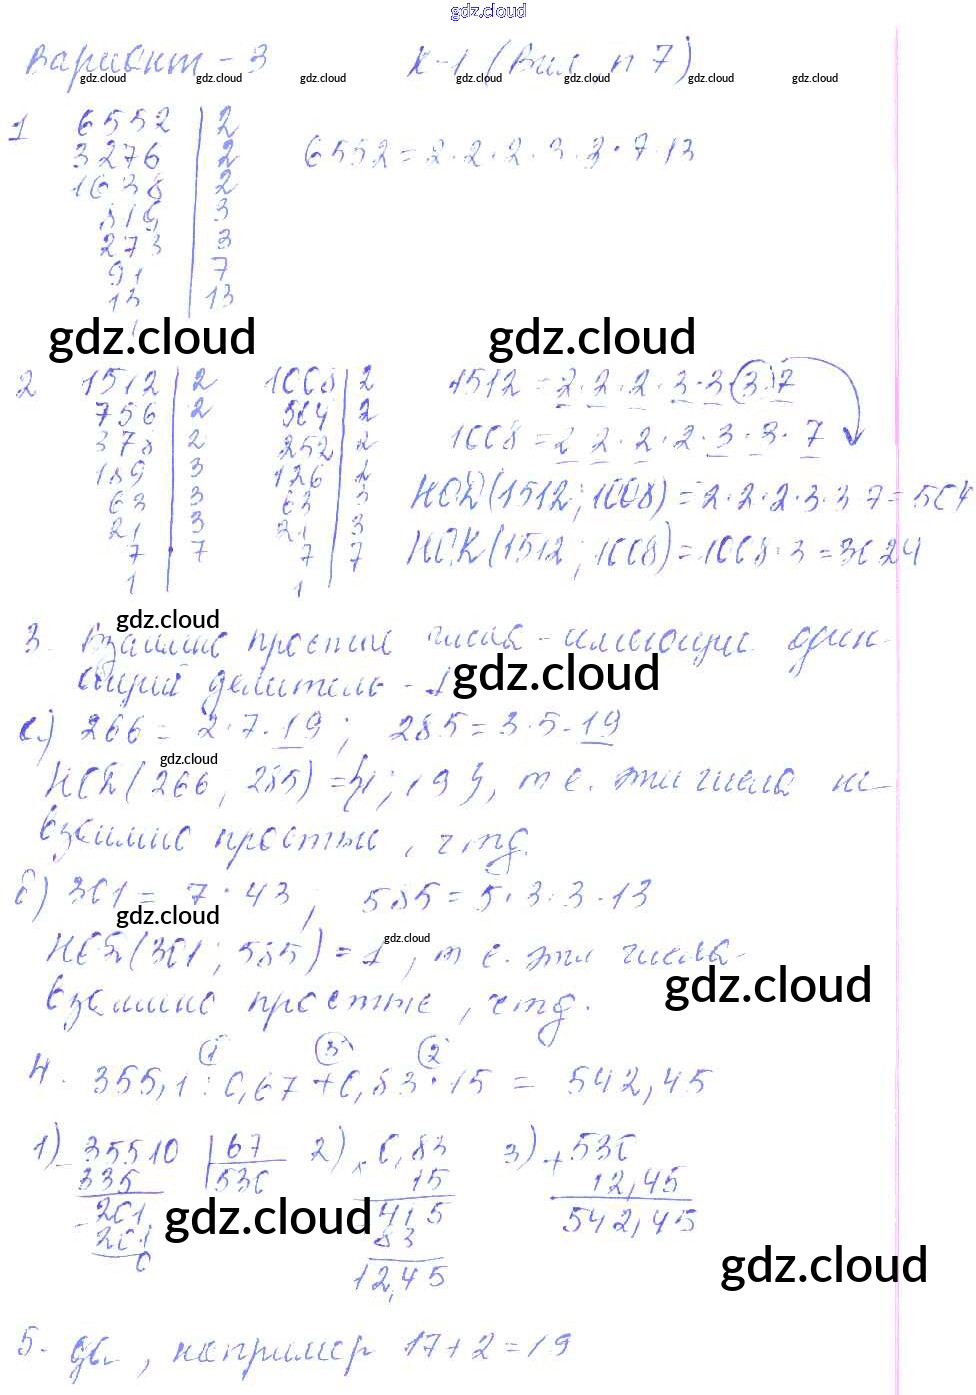 gdz.cloud
Вариант - 3 К-1 (Вил, п 7)
gdz.cloud gdz.cloud gdz.cloud gdz.cloud gdz.cloud gdz.cloud gdz.cloud
1 6552 | 2
3276 | 2 6552 = 2·2·2·3·3·7·13
1638 | 2
819 | 3
273 | 3
91 | 7
13 | 13
1
gdz.cloud gdz.cloud
2 1512 | 2 1008 | 2 1512 = 2·2·2·3·3·3·7
756 | 2 504 | 2
378 | 2 252 | 2 1008 = 2 2·2·2·3·3·7
189 | 3 126 | 2
63 | 3 63 | 3 НОД(1512; 1008) = 2·2·2·3·3·7 = 504
21 | 3 21 | 3
7 | 7 7 | 7 НОК(1512; 1008) = 1008·3 = 3024
1 1
gdz.cloud
3. Взаимно простые числа - имеющие один
общий делитель - 1
gdz.cloud
а) 266 = 2·7·19; 285 = 3·5·19
gdz.cloud
НОД(266; 285) = {1; 19}, т е. эти числа не
взаимно простые, чтд.
б) 301 = 7·43; 585 = 5·3·3·13
gdz.cloud
gdz.cloud
НОД(301; 585) = 1, т е. эти числа -
gdz.cloud
взаимно простые, чтд.
1 3 2
4. 355,1 : 0,67 + 0,83 · 15 = 542,45
1) 35510 | 67 2) × 0,83 3) + 530
335 530 15 12,45
201 415 542,45
201 83
0 12,45
gdz.cloud gdz.cloud
gdz.cloud
5. да, например 17 + 2 = 19